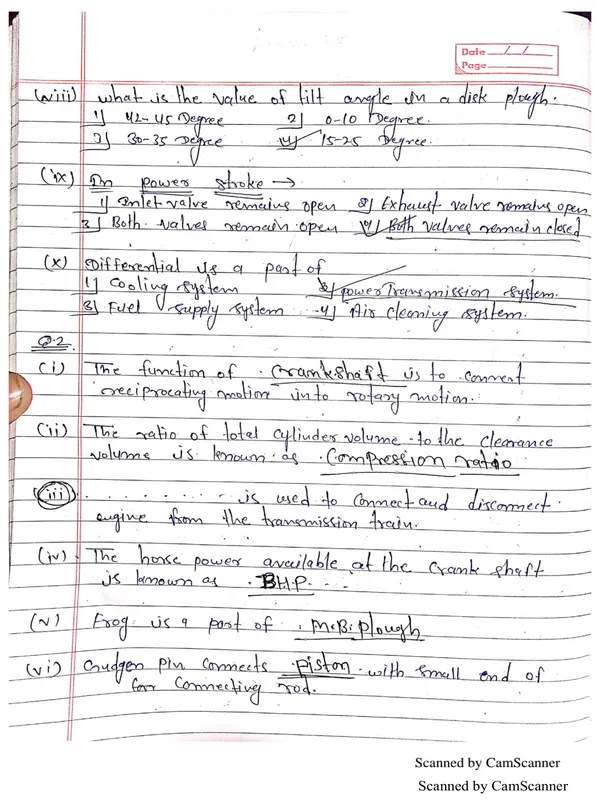 Date / /
Page
(viii) what is the value of tilt angle in a disk plough.
1) 42-45 Degree 2) 0-10 Degree.
3) 30-35 Degree 4) 15-25 Degree.
(ix) In power stroke →
1) Inlet valve remains open 2) Exhaust valve remains open
3) Both valves remain open 4) Both valves remain closed
(x) Differential is a part of
1) Cooling system 2) power Transmission system.
3) Fuel supply system 4) Air cleaning system.
Q.2
(i) The function of . Crankshaft is to convert
reciprocating motion into rotary motion.
(ii) The ratio of total cylinder volume to the clearance
volume is known as . Compression ratio
(iii) . . . . . . . . . . is used to connect and disconnect
engine from the transmission train.
(iv) The horse power available at the crank shaft
is known as . BHP. . . .
(v) Frog is a part of . M.B. plough
(vi) Gudgen pin connects .piston. with small end of
Connecting rod.
Scanned by CamScanner
Scanned by CamScanner